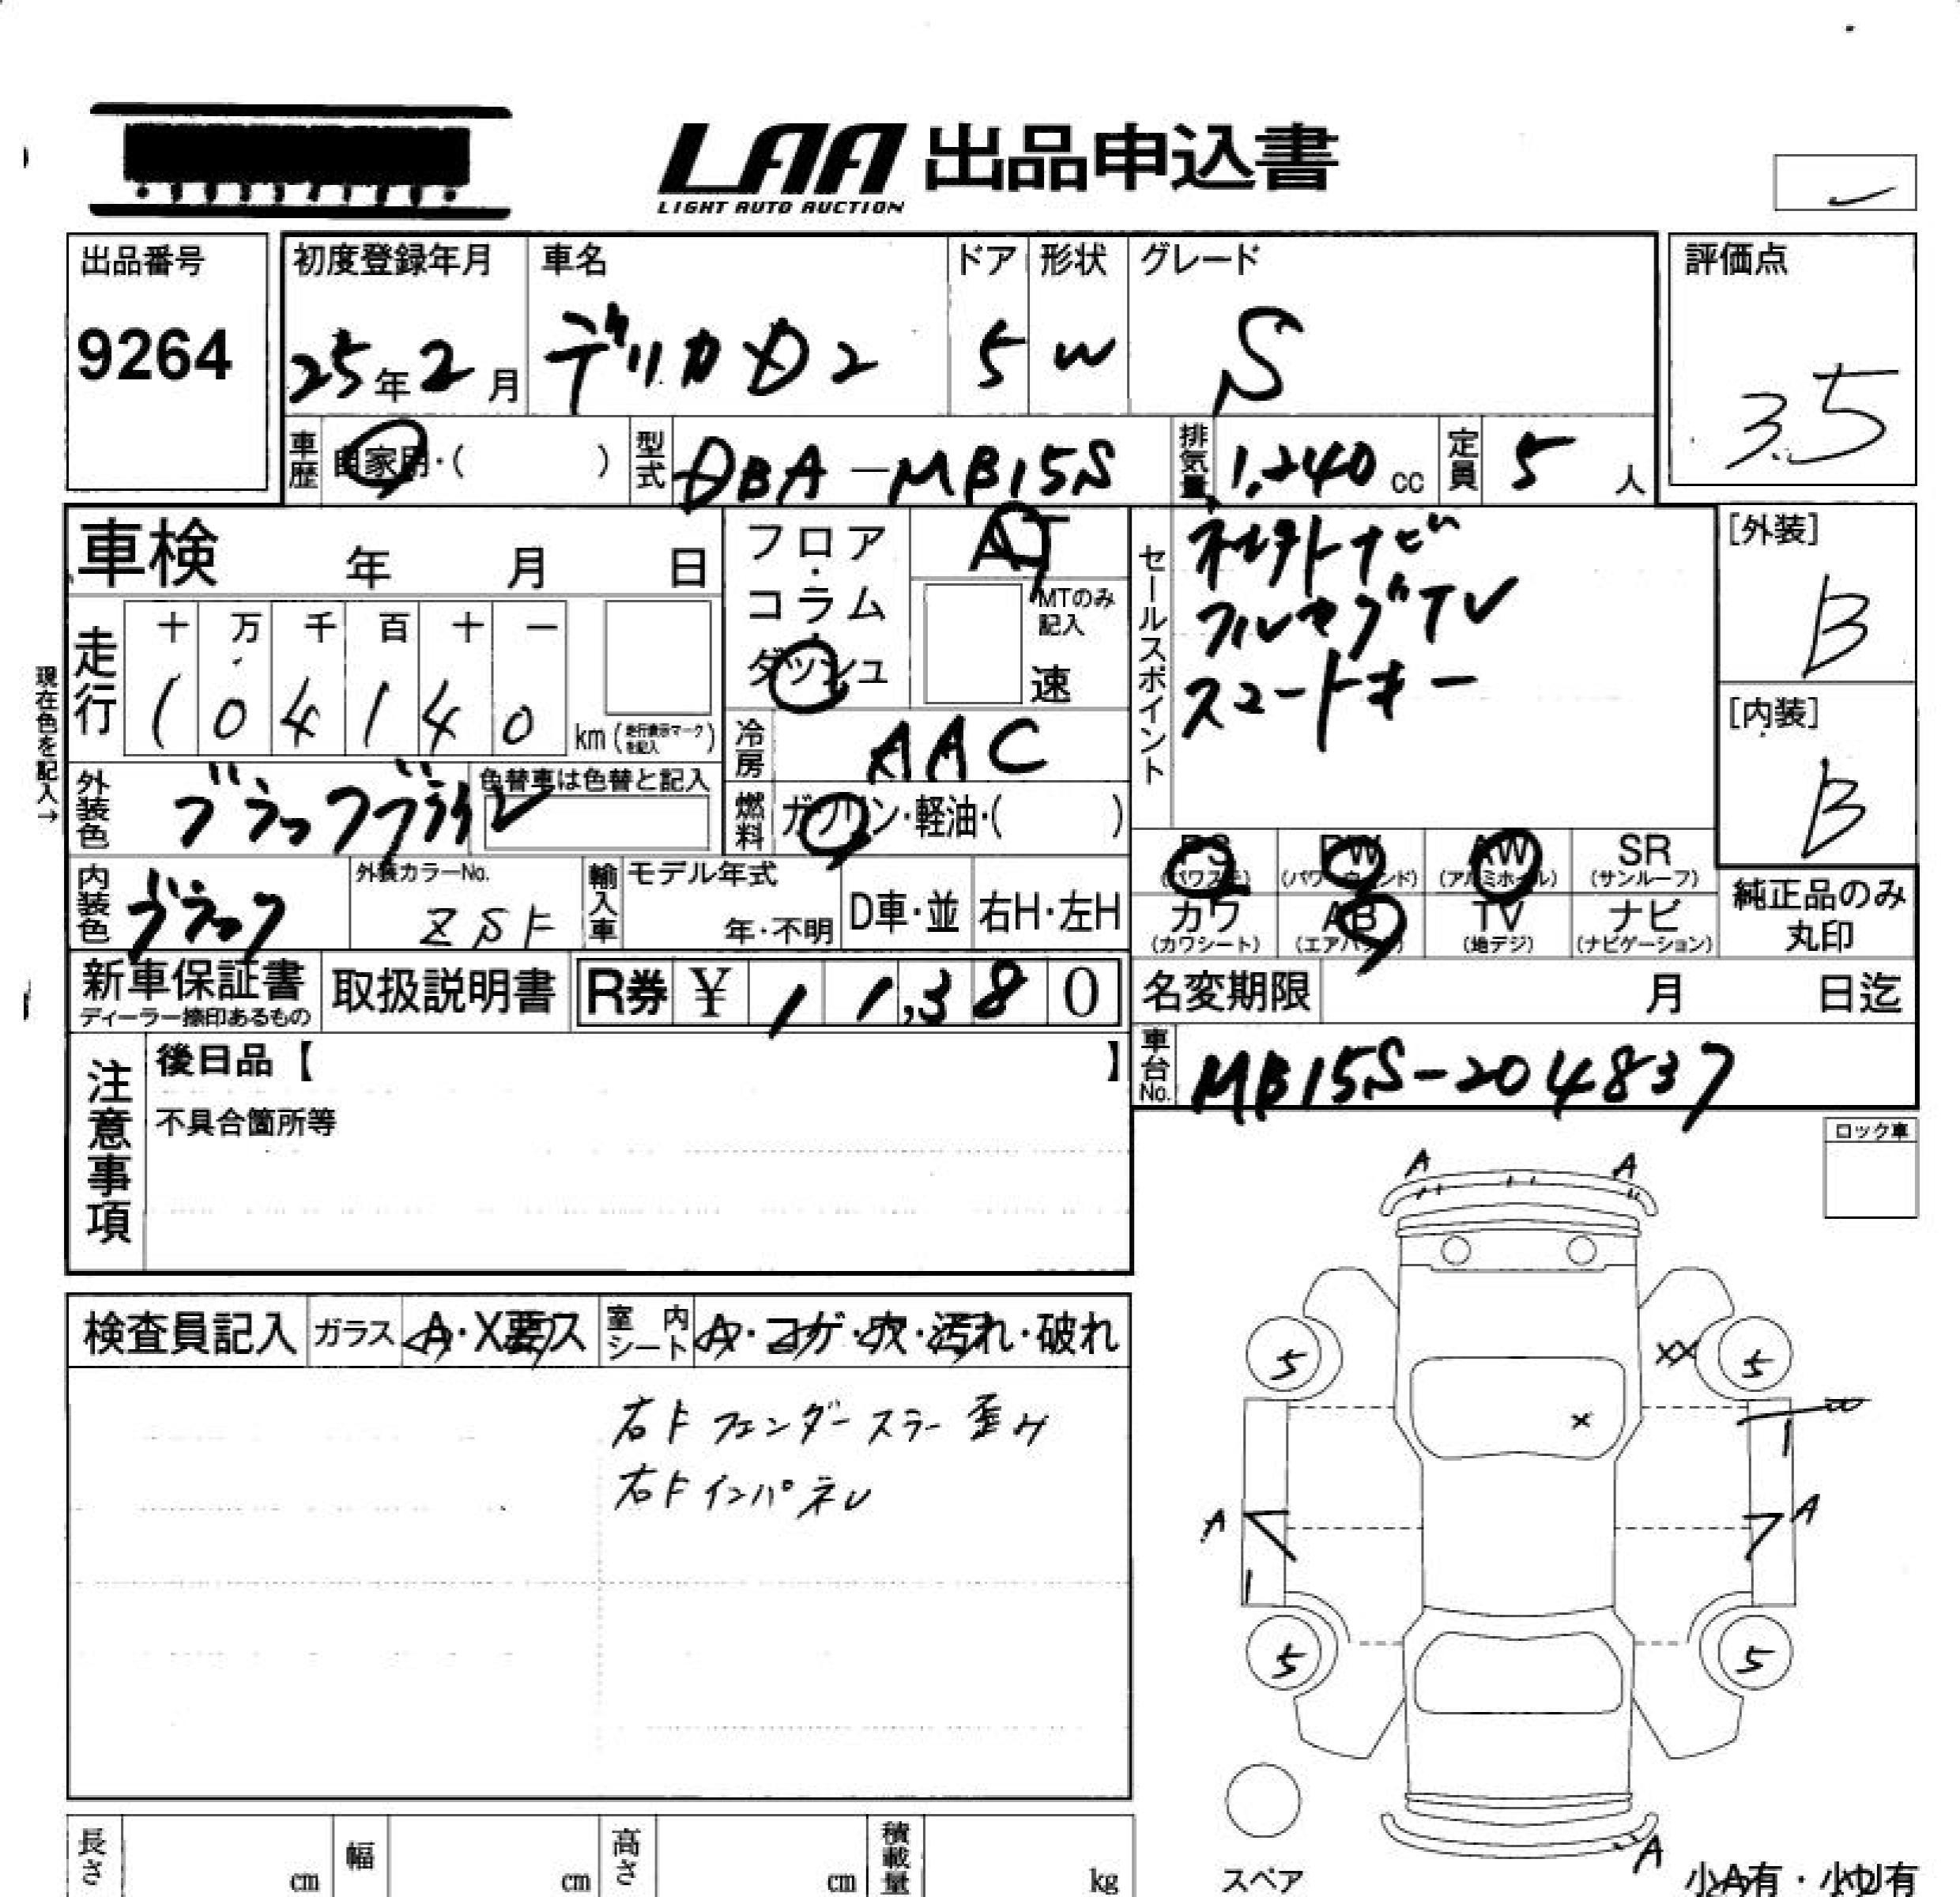 LAA 出品申込書
LIGHT AUTO AUCTION
出品番号
9264
初度登録年月
25年2月
車名
デリカD2
ドア
5
形状
W
グレード
S
評価点
3.5
車歴
自家用・( )
型式
DBA-MB15S
排気量
1,240 cc
定員
5 人
車検 年 月 日
フロア・コラム・ダッシュ
AT
MTのみ記入
速
セールスポイント
フルセグTV
スマートキー
[外装]
B
[内装]
B
現在色を記入→
走行
十 万 千 百 十 一
1 0 4 1 4 0 km (走行表示マークを記入)
冷房
AAC
外装色
色替車は色替と記入
燃料
ガソリン・軽油・( )
PS (パワステ)
PW (パワーウィンド)
AW (アルミホイール)
SR (サンルーフ)
カワ (カワシート)
AB (エアバッグ)
TV (地デジ)
ナビ (ナビゲーション)
純正品のみ丸印
内装色
ブラック
外装カラーNo.
輸入車
モデル年式
年・不明
D車・並
右H・左H
新車保証書
ディーラー捺印あるもの
取扱説明書
R券 ¥ 11,380
名変期限 月 日迄
車台No.
MB15S-204837
注意事項
後日品【 】
不具合箇所等
ロック車
検査員記入
ガラス
A・X要ス
室内シート
A・コゲ・穴・汚れ・破れ
右F フェンダーステー 歪み
右F インパネル
A A
5 XX 5
X
W
1
A A
1
5 5
A
スペア
小A有・小U有
長さ cm
幅 cm
高さ cm
積載量 kg